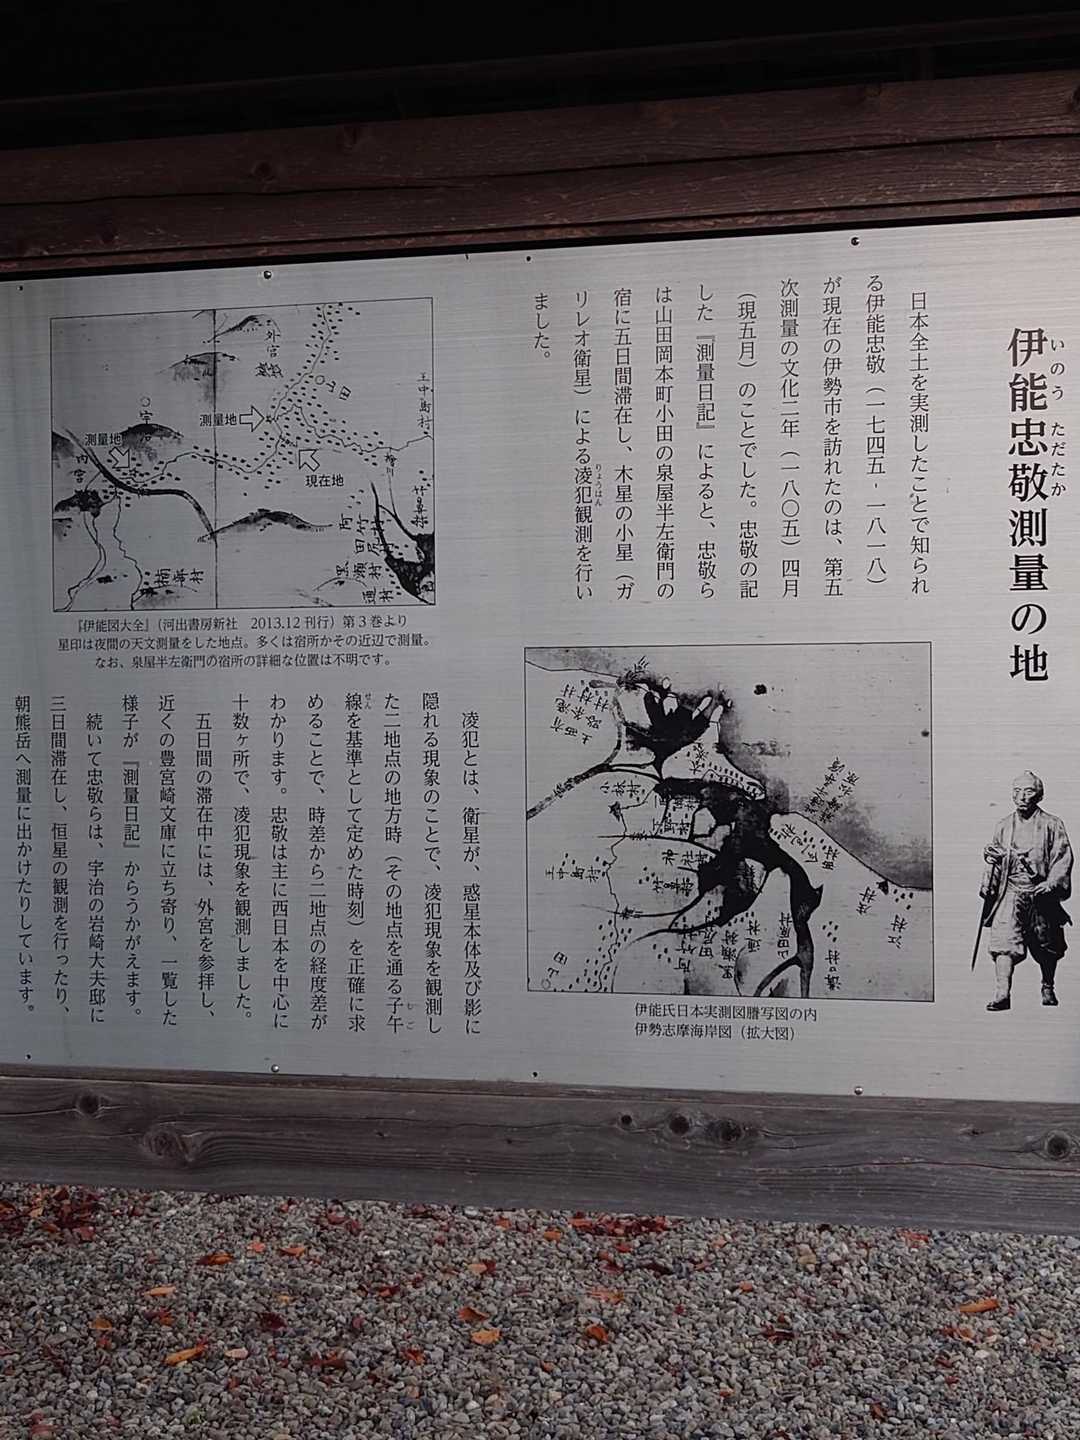 伊能忠敬測量の地
いのう ただたか
日本全土を実測したことで知られ
る伊能忠敬（一七四五-一八一八）
が現在の伊勢市を訪れたのは、第五
次測量の文化二年（一八〇五）四月
（現五月）のことでした。忠敬の記
した『測量日記』によると、忠敬ら
は山田岡本町小田の泉屋半左衛門の
宿に五日間滞在し、木星の小星（ガ
リレオ衛星）による凌犯観測を行い
りょうはん
ました。
外宮
山田
宇治
内宮
王中島村
測量地
測量地
現在地
『伊能図大全』（河出書房新社　2013.12 刊行）第３巻より
星印は夜間の天文測量をした地点。多くは宿所かその近辺で測量。
なお、泉屋半左衛門の宿所の詳細な位置は不明です。
王中島村
山田
江村
伊能氏日本実測図謄写図の内
伊勢志摩海岸図（拡大図）
凌犯とは、衛星が、惑星本体及び影に
隠れる現象のことで、凌犯現象を観測し
た二地点の地方時（その地点を通る子午
しご
線を基準として定めた時刻）を正確に求
せん
めることで、時差から二地点の経度差が
わかります。忠敬は主に西日本を中心に
十数ヶ所で、凌犯現象を観測しました。
五日間の滞在中には、外宮を参拝し、
近くの豊宮崎文庫に立ち寄り、一覧した
様子が『測量日記』からうかがえます。
続いて忠敬らは、宇治の岩崎大夫邸に
三日間滞在し、恒星の観測を行ったり、
朝熊岳へ測量に出かけたりしています。